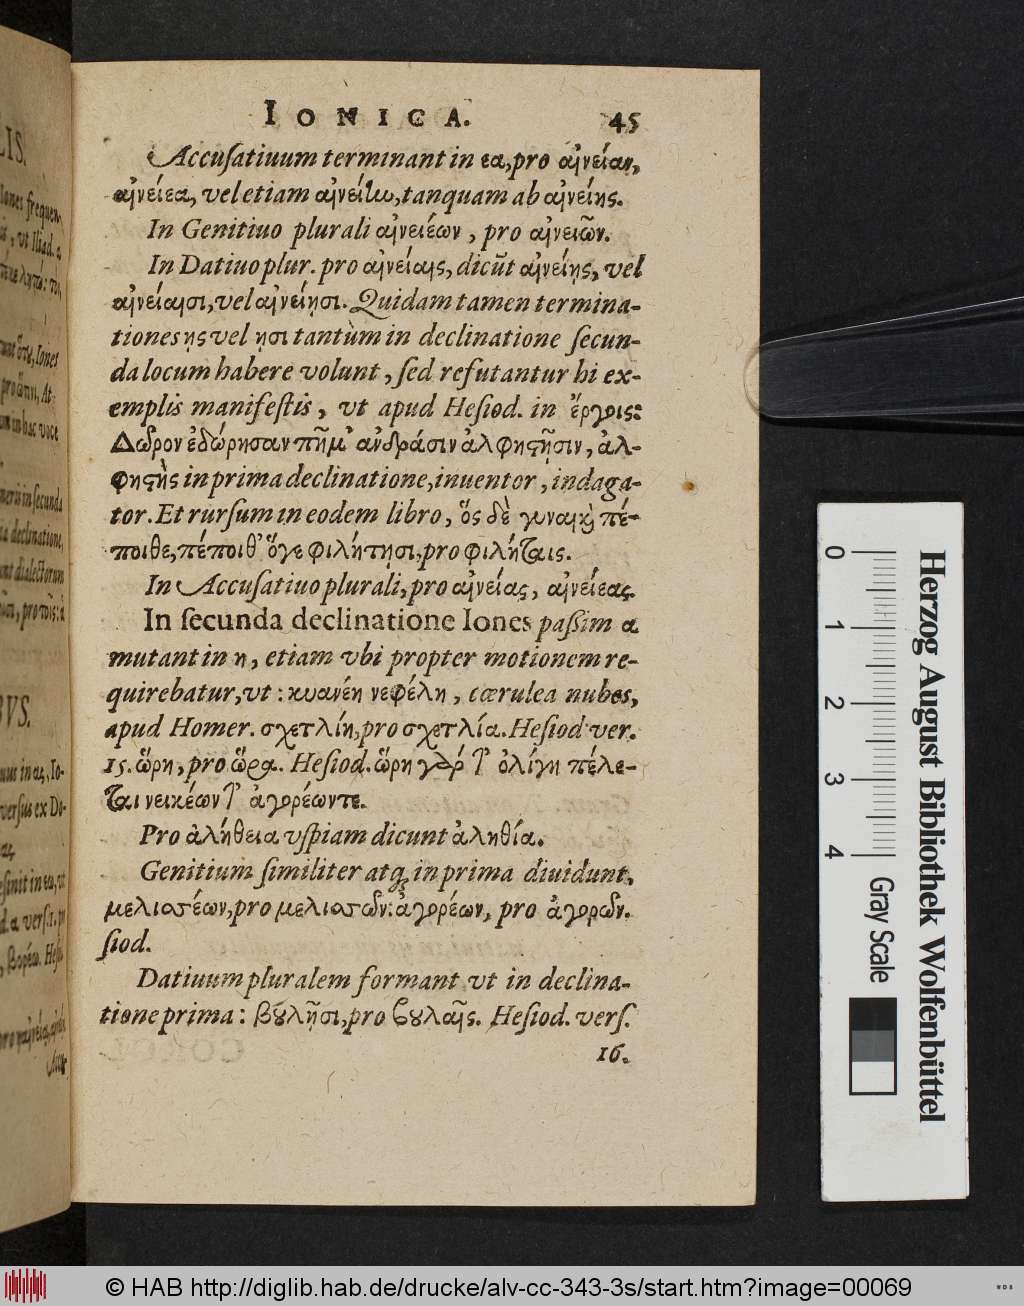 IONICA. 45
Accusatiuum terminant in εα, pro αἰνείαν,
αἰνείεα, vel etiam αἰνείην, tanquam ab αἰνείης.
In Genitiuo plurali αἰνειέων, pro αἰνειῶν.
In Datiuo plur. pro αἰνείαις, dicũt αἰνείῃς, vel
αἰνείαισι, vel αἰνείῃσι. Quidam tamen termina-
tiones ῃς vel ῃσι tantùm in declinatione secun-
da locum habere volunt, sed refutantur hi ex-
emplis manifestis, vt apud Hesiod. in ἔργοις:
Δῶρον ἐδώρησαν πῆμ' ἀνδράσιν ἀλφηστῇσιν, ἀλ-
φηστὴς in prima declinatione, inuentor, indaga-
tor. Et rursum in eodem libro, ὅς δὲ γυναικὶ πέ-
ποιθε, πέποιθ' ὅγε φιλήτῃσι, pro φιλήταις.
In Accusatiuo plurali, pro αἰνείας, αἰνείεας.
In secunda declinatione Iones passim α
mutant in η, etiam vbi propter motionem re-
quirebatur, vt: κυανέη νεφέλη, cœrulea nubes,
apud Homer. σχετλίη, pro σχετλία. Hesiod ver.
15. ὥρη, pro ὥρα. Hesiod. ὥρη γάρ τ' ὀλίγη πέλε-
ται νεικέων τ' ἀγορέωντε.
Pro ἀλήθεια vspiam dicunt ἀληθία.
Genitium similiter atq; in prima diuidunt,
μελισσέων, pro μελισσῶν: ἀγορέων, pro ἀγορῶν.
siod.
Datiuum pluralem formant, vt in declina-
tione prima: βουλῇσι, pro βουλαῖς. Hesiod. vers.
16.
0 1 2 3 4
Gray Scale
Herzog August Bibliothek Wolfenbüttel
© HAB http://diglib.hab.de/drucke/alv-cc-343-3s/start.htm?image=00069